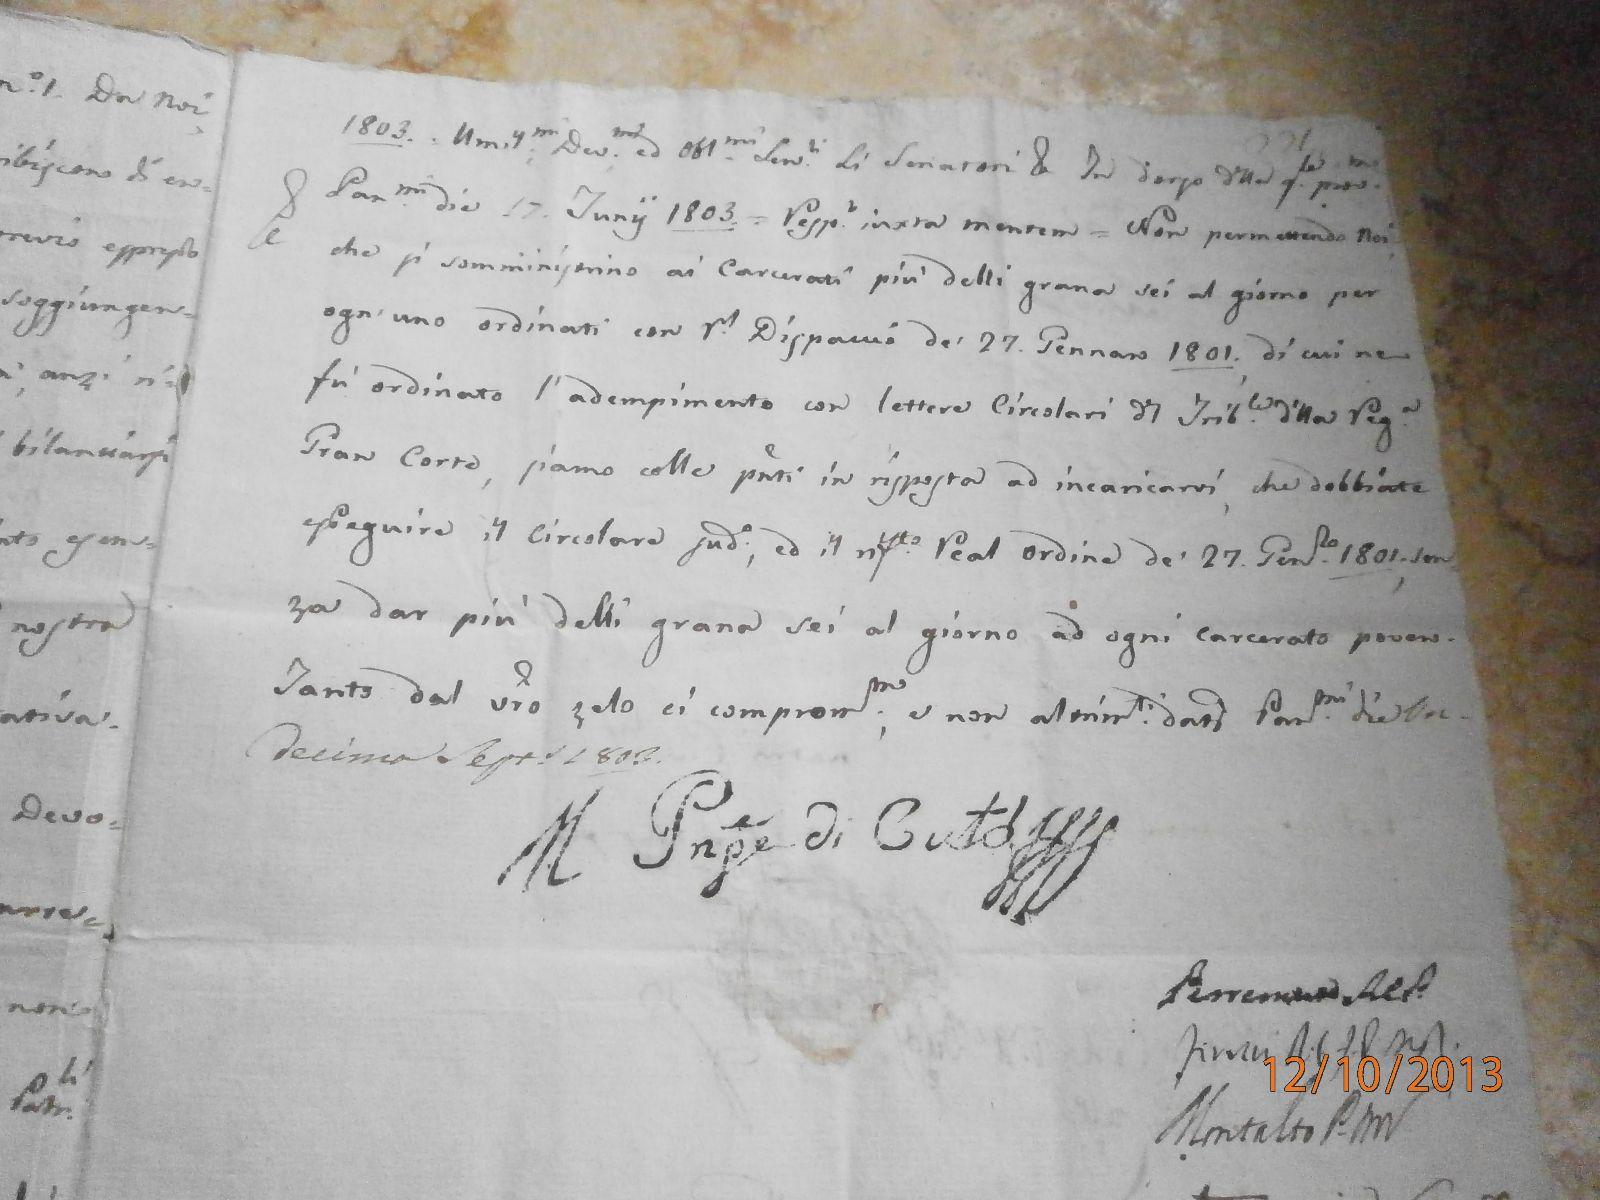 n.º 1. Da Noi,
ibiscono di en=
previo espresso
soggiungen=
anzi ri=
bilanciarsi
nostra
ativa.
Devo=
Patr.li
1803. Um.mi Dev.mi ed Obl.mi Serv.ri Li Senatori & In dorso della
Pan.mi die 17. Junij 1803. = Resp.r iuxta mentem = Non permettendo Noi,
che si somministrino ai Carcerati più delli grana sei al giorno per
ogn'uno ordinati con R.l Dispaccio de' 27. Gennaro 1801., di cui ne
fù ordinato l'adempimento con lettere Circolari del Trib.le della Reg.a
Gran Corte, siamo colle p̃nti in risposta ad incaricarvi, che dobbiate
eseguire il Circolare sud.o, ed il Real Ordine de' 27. Gen.ro 1801. sen
za dar più delli grana sei al giorno ad ogni carcerato povero.
Tanto dal vr̃o zelo ci comprom.mo, e non altrim.ti dat. Pan.mi die
decima Sept.s 1803.
Pnpe di Cutò
Montalto
12/10/2013